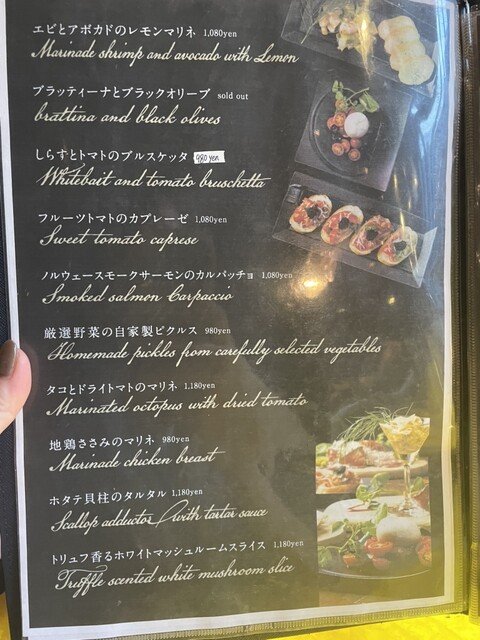 エビとアボカドのレモンマリネ 1,080yen
Marinade shrimp and avocado with Lemon
ブラッティーナとブラックオリーブ sold out
brattina and black olives
しらすとトマトのブルスケッタ 980yen
Whitebait and tomato bruschetta
フルーツトマトのカプレーゼ 1,080yen
Sweet tomato caprese
ノルウェースモークサーモンのカルパッチョ 1,080yen
Smoked salmon Carpaccio
厳選野菜の自家製ピクルス 980yen
Homemade pickles from carefully selected vegetables
タコとドライトマトのマリネ 1,180yen
Marinated octopus with dried tomato
地鶏ささみのマリネ 980yen
Marinade chicken breast
ホタテ貝柱のタルタル 1,180yen
Scallop adductor with tartar sauce
トリュフ香るホワイトマッシュルームスライス 1,180yen
Truffle scented white mushroom slice